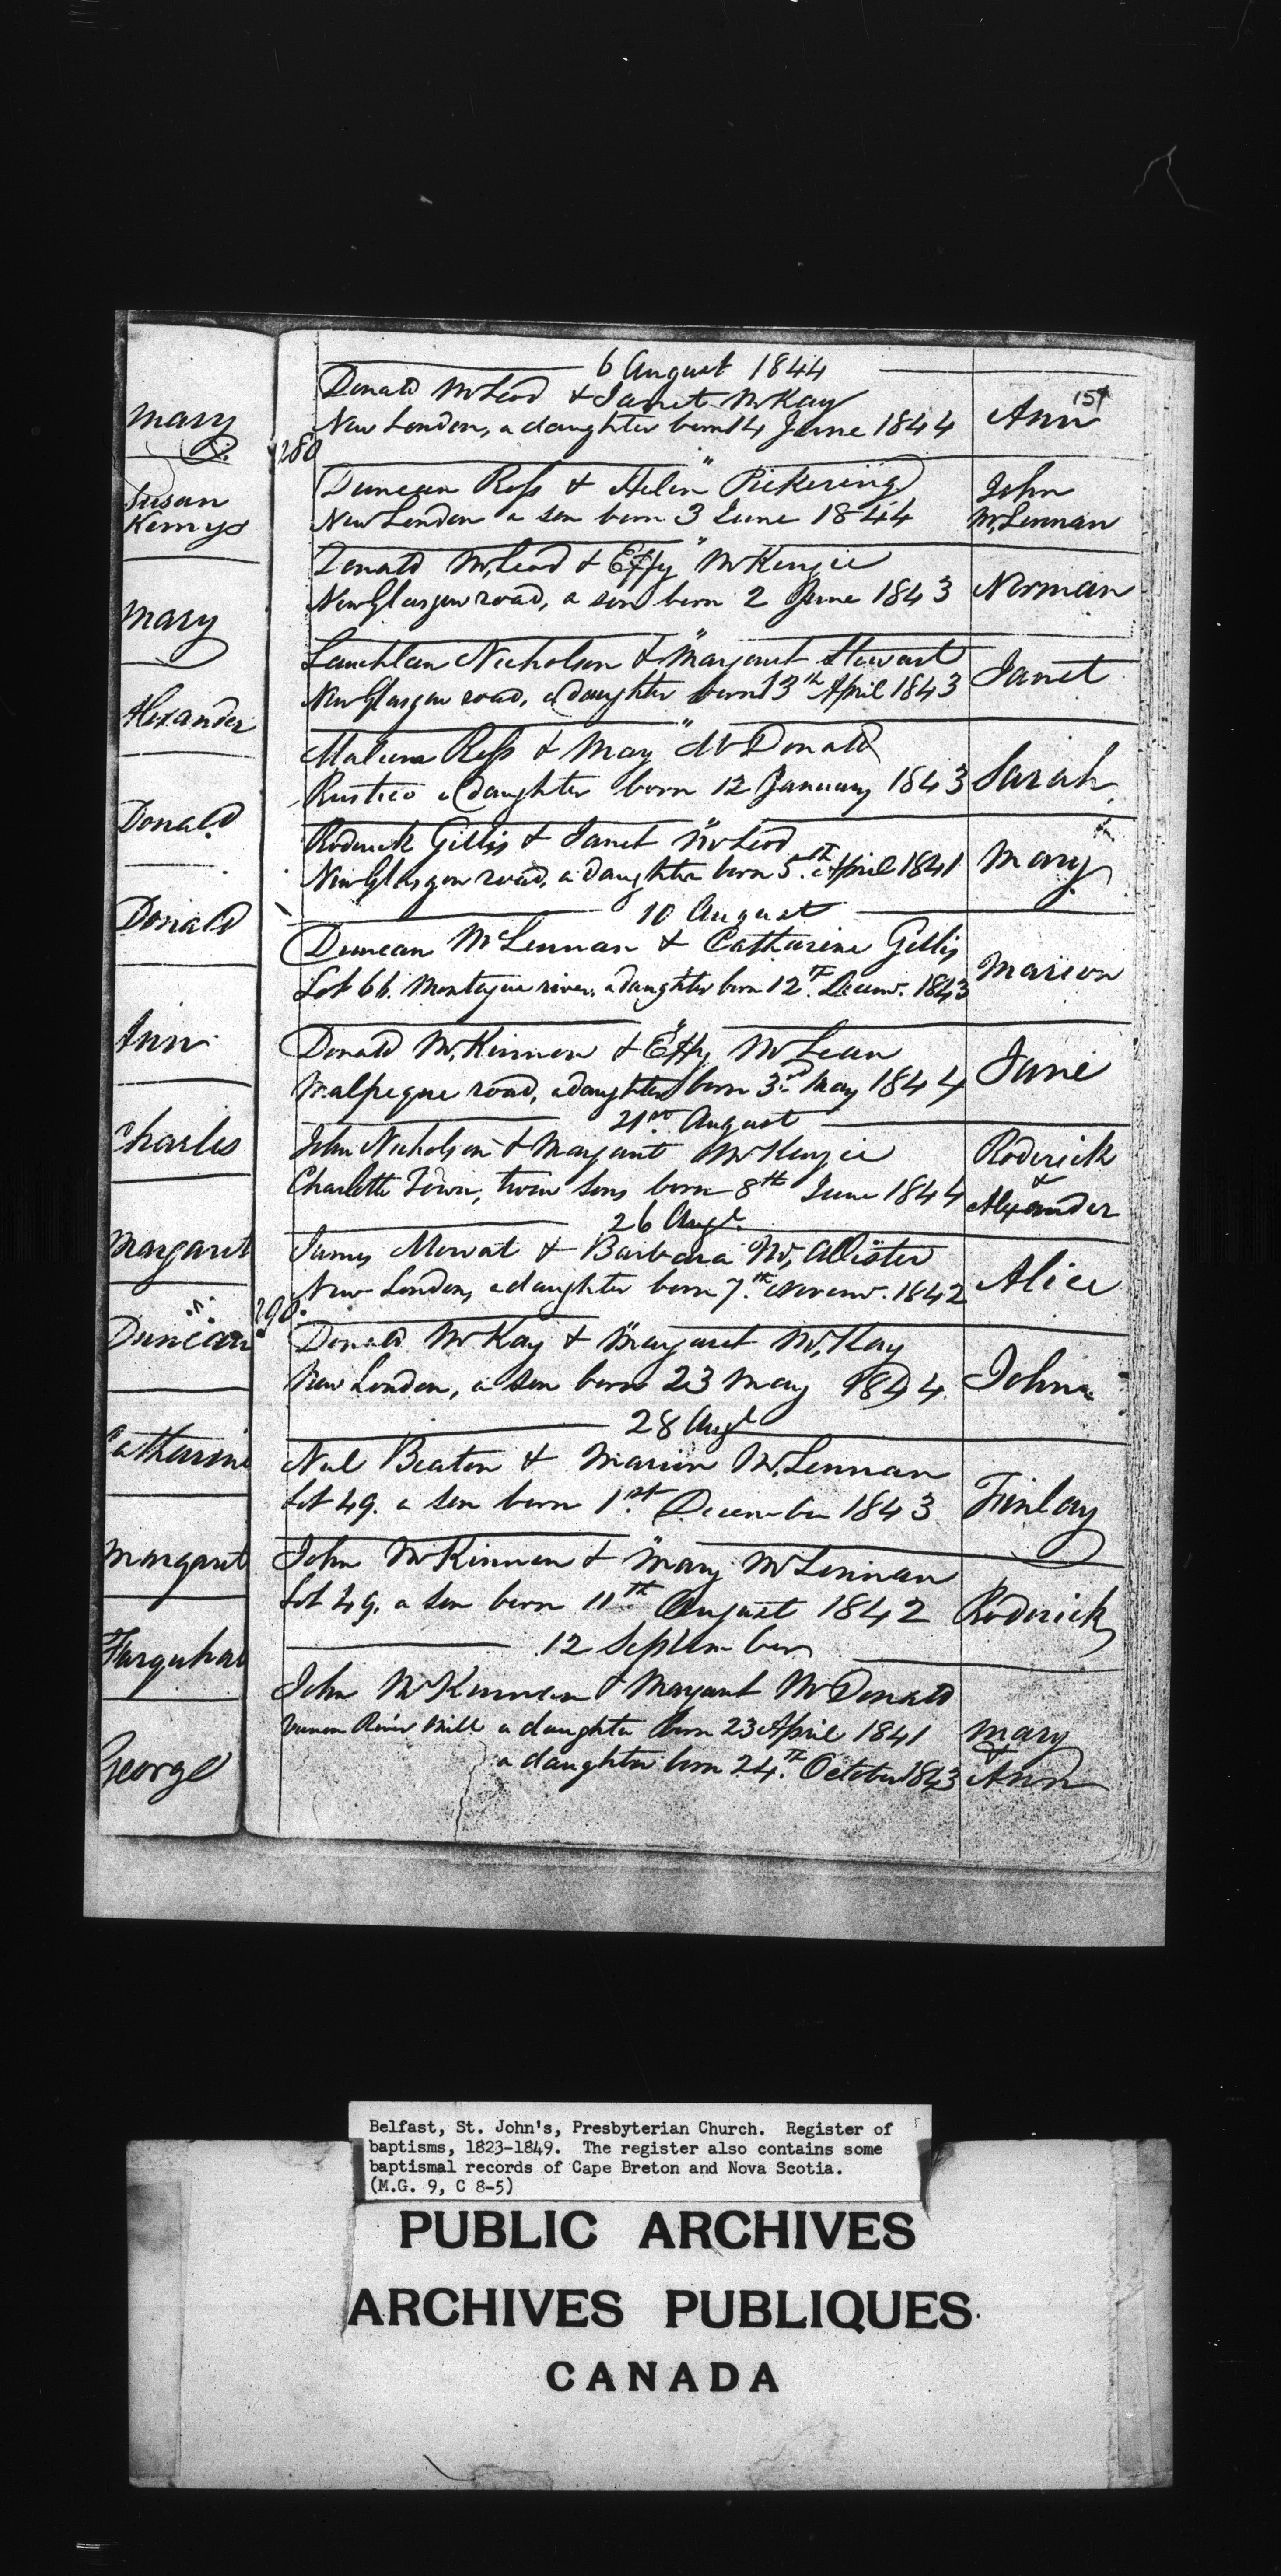 Mary
Susan
Kemys
Mary
Alexander
Donald
Donald
Ann
Charles
Margaret
Duncan
Catharine
Margaret
Farquhar
George
280
290.
154
6 August 1844
Donald McLeod & Janet McKay
New London, a daughter born 14 June 1844
Ann
"
Duncan Ross & Helen Pickering
New London a son born 3 June 1844
John
McLennan
"
Donald McLeod & Effy McKenzie
New Glasgow road, a son born 2 June 1843
Norman
"
Lauchlan Nicholson & Margaret Stewart
New Glasgow road, a daughter born 13th April 1843
Janet
"
Malcom Ross & Mary McDonald
Rustico a daughter born 12 January 1843
Sarah
"
Roderick Gillis & Janet McLeod
New Glasgow road, a daughter born 5th April 1841
Mary
10 August
Duncan McLennan & Catharine Gillis
Lot 66. Montague river, a daughter born 12th Decemr. 1843
Marion
"
Donald McKinnon & Effy McLean
Malpeque road, a daughter born 3rd May 1844
Jane
21st August
John Nicholson & Margaret McKenzie
Charlotte Town, twin sons born 8th June 1844
Roderick
&
Alexander
26 Augt.
James Mowat & Barbara McAllister
New London, a daughter born 7th Novemr. 1842
Alice
"
Donald McKay & Margaret McKay
New London, a son born 23 May 1844
John
28 Augt
Neil Beaton & Marion McLennan
Lot 49. a son born 1st December 1843
Finlay
"
John McKinnon & Mary McLennan
Lot 49. a son born 11th August 1842
Roderick
12 September
John McKinnon & Margaret McDonald
Vernon River Mill a daughter born 23 April 1841
a daughter born 24th October 1843
Mary
&
Ann
Belfast, St. John's, Presbyterian Church. Register of
baptisms, 1823-1849. The register also contains some
baptismal records of Cape Breton and Nova Scotia.
(M.G. 9, C 8-5)
PUBLIC ARCHIVES
ARCHIVES PUBLIQUES
CANADA